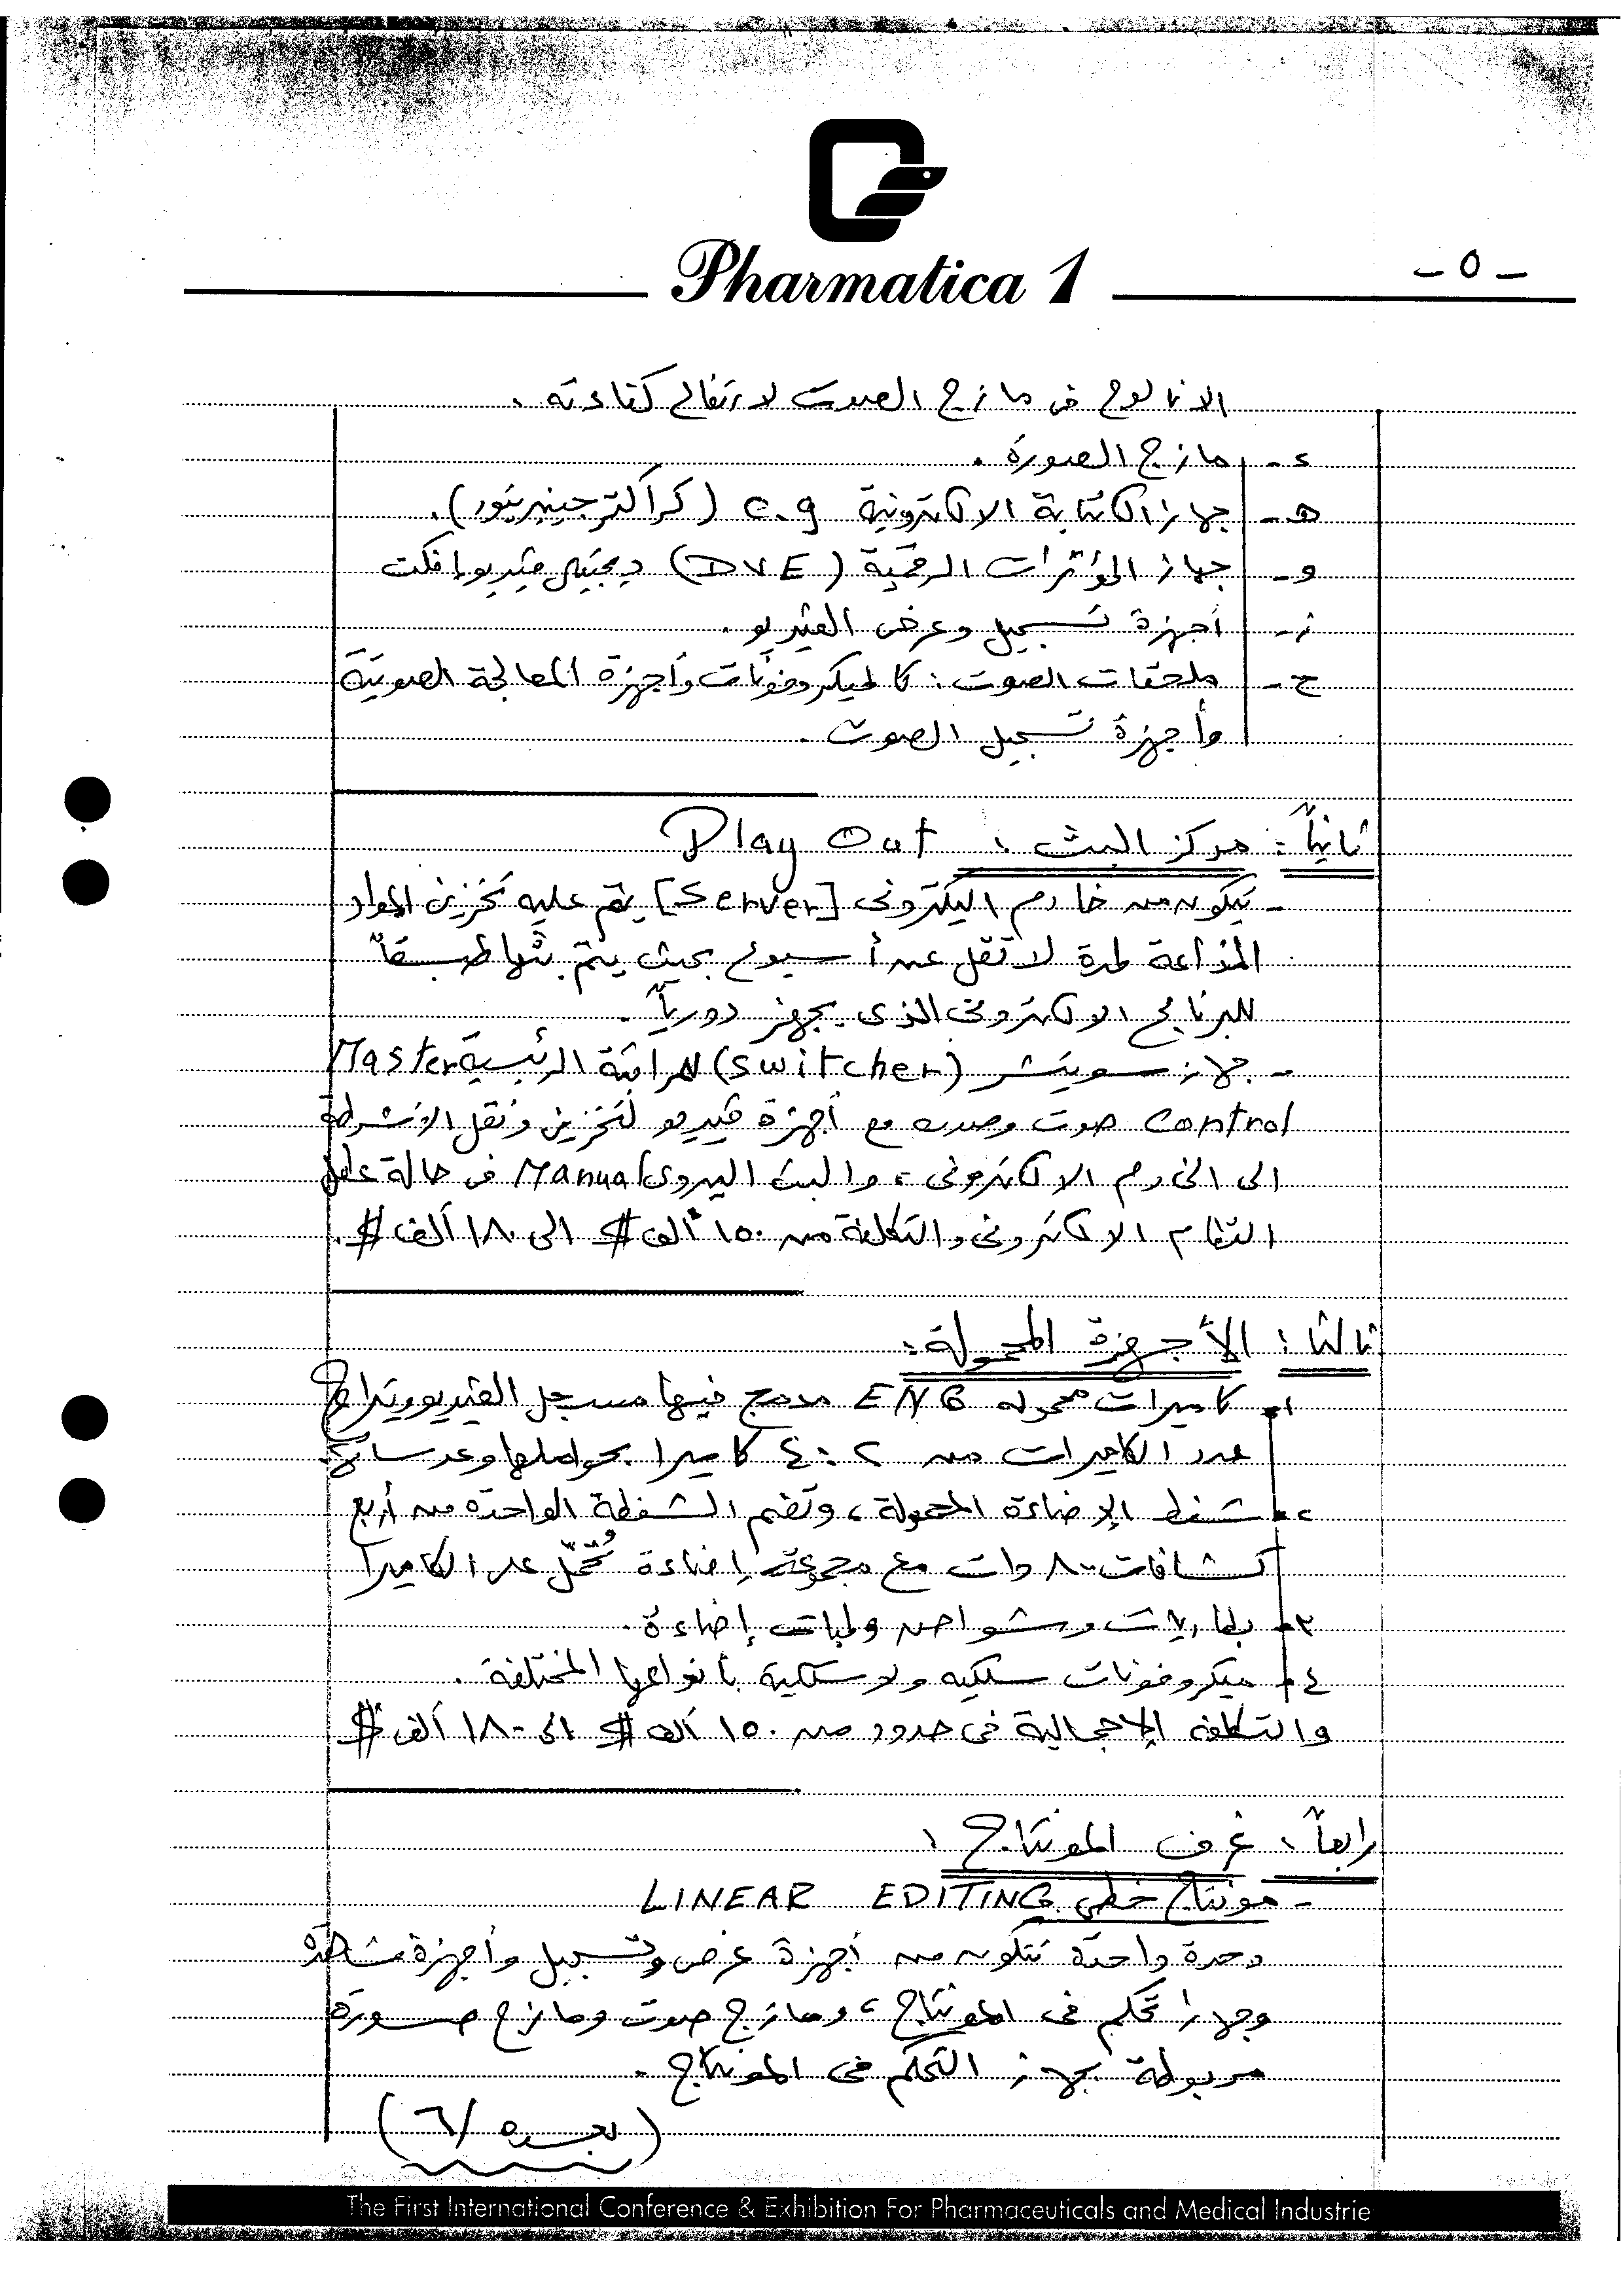 Pharmatica 1
- ٥ -
الانالوج فى مازج الصوت لارتفاع كفاءته .
ء - مازج الصورة .
هـ - جهاز الكتابة الالكترونية C.g (كراكتر جينيريتور) .
و - جهاز المؤثرات الرقمية (DVE) ديجيتال فيديو إفكت
ز - أجهزة تسجيل وعرض الفيديو .
ح - ملحقات الصوت : كالميكروفونات وأجهزة المعالجة الصوتية
وأجهزة تسجيل الصوت .
ثانياً : مركز البث : Play Out
- يتكون من خادم اليكترونى [Server] يتم عليه تخزين المواد
المذاعة لمدة لا تقل عن أسبوع بحيث يتم بثها طبقاً
للبرنامج الالكترونى الذى يجهز دورياً .
- جهاز سويتشر (Switcher) للمراقبة الرئيسية Master
Control صوت وصوره مع أجهزة فيديو لتخزين ونقل الأشرطة
الى الخادم الالكترونى ، والبث اليدوى Manual فى حالة عطل
النظام الالكترونى والتكلفة من ١٥٠ ألف $ الى ١٨٠ ألف $ .
ثالثا : الأجهزة المحمولة :
١- كاميرات محموله ENG مدمج فيها مسجل الفيديو ويتراوح
عدد الكاميرات من ٢ : ٤ كاميرا بحواملها وعدساتها
٢- شنط الإضاءة المحمولة ، وتضم الشنطة الواحدة من أربع
كشافات ٨٠٠ وات مع مجموعة إضاءة تُحمّل على الكاميرا
٣- بطاريات وشواحن ولمبات إضاءة .
٤- ميكروفونات سلكيه ولاسلكية بأنواعها المختلفة .
والتكلفه الإجمالية فى حدود من ١٥٠ ألف $ الى ١٨٠ ألف $
رابعاً : غرف المونتاج :
- مونتاج خطى LINEAR EDITING
وحدة واحدة تتكون من أجهزة عرض وتسجيل وأجهزة مشاهدة
وجهاز تحكم فى المونتاج ، ومازج صوت ومازج صورة
مربوطة بجهاز التحكم فى المونتاج .
(بعده /٦)
The First International Conference & Exhibition For Pharmaceuticals and Medical Industrie